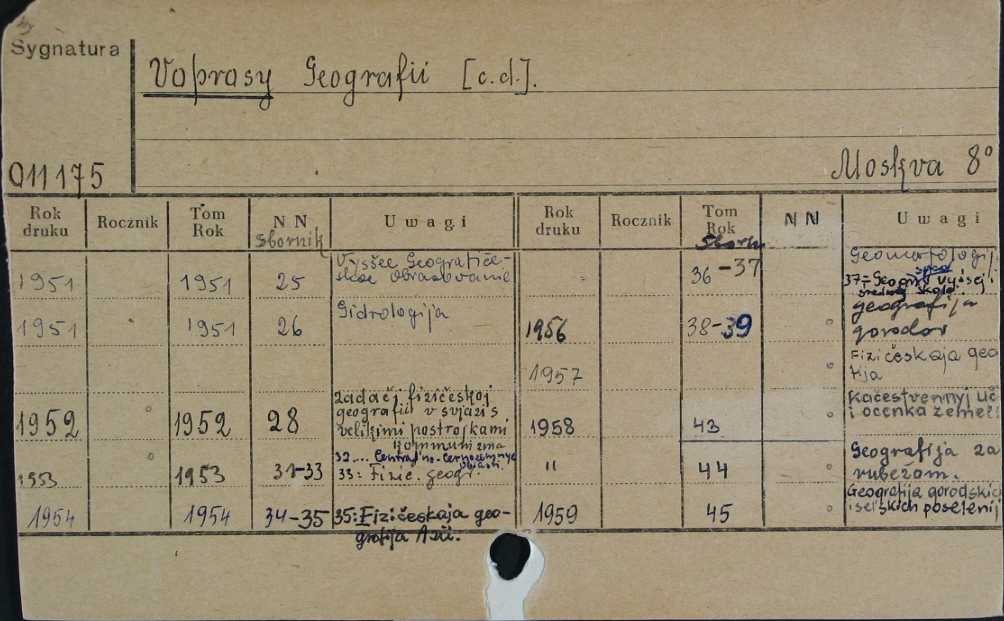 Sygnatura
Voprosy Geografii [c.d.].
011175
Moskva 8°
Rok druku Rocznik Tom Rok NN Sbornik Uwagi Rok druku Rocznik Tom Rok Sborn NN Uwagi
1951 1951 25 Vysšee Geografiče-
skoe obrazovanie
36-37 Geomorfologij
37-Geogr. vyšsej i
srednej škole
1951 1951 26 Gidrologija
1956 38-39 geografija
gorodov
1957 Fizičeskaja geo
kja
1952 1952 28 zadači fizičeskoj
geografii v svjazi s
velikimi postrojkami
kommunizma
1958 43 Kačestvennyj uč
i ocenka zemel'
1953 1953 31-33 32... Central'no-černozemnye
33: Fizič. geogr.
" 44 Geografija za
rubežom.
1954 1954 34-35 35: Fizičeskaja geo-
grafija Azii.
1959 45 Geografija gorodskic
i sel'skich poselenij